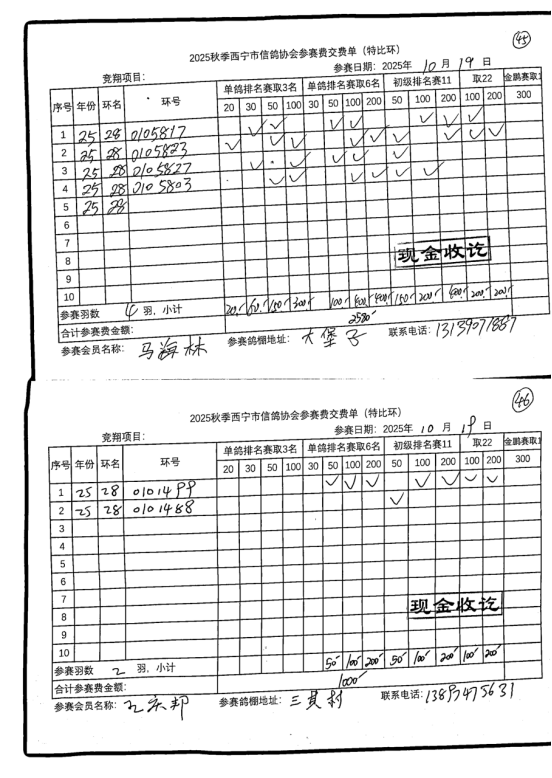 45
2025秋季西宁市信鸽协会参赛费交费单（特比环）
竞翔项目： 参赛日期：2025年 10 月 19 日
序号 年份 环名 环号 单鸽排名赛取3名 单鸽排名赛取6名 初级排名赛11 取22 金鹏赛取1
20 30 50 100 30 50 100 200 50 100 200 100 200 300
1 25 28 0105817 ✓ ✓ ✓ ✓ ✓ ✓ ✓
2 25 28 0105823 ✓ ✓ ✓ ✓ ✓ ✓ ✓ ✓ ✓
3 25 28 0105827 ✓ ✓ ✓ ✓ ✓
4 25 28 0105803 ✓ ✓ ✓ ✓ ✓ ✓
5 25 28
6
7
8 现金收讫
9
10
参赛羽数 4 羽，小计 20 60 150 300 100 400 400 150 200 400 200 200
合计参赛费金额： 2580
参赛会员名称： 马海林 参赛鸽棚地址： 大堡子 联系电话：13139071887
46
2025秋季西宁市信鸽协会参赛费交费单（特比环）
竞翔项目： 参赛日期：2025年 10 月 19 日
序号 年份 环名 环号 单鸽排名赛取3名 单鸽排名赛取6名 初级排名赛11 取22 金鹏赛取1
20 30 50 100 30 50 100 200 50 100 200 100 200 300
1 25 28 0101499 ✓ ✓ ✓ ✓ ✓ ✓ ✓
2 25 28 0101488 ✓
3
4
5
6
7 现金收讫
8
9
10
参赛羽数 2 羽，小计 50 100 200 50 100 200 100 200
合计参赛费金额： 1000
参赛会员名称： 邦 参赛鸽棚地址： 三其村 联系电话：13897475631